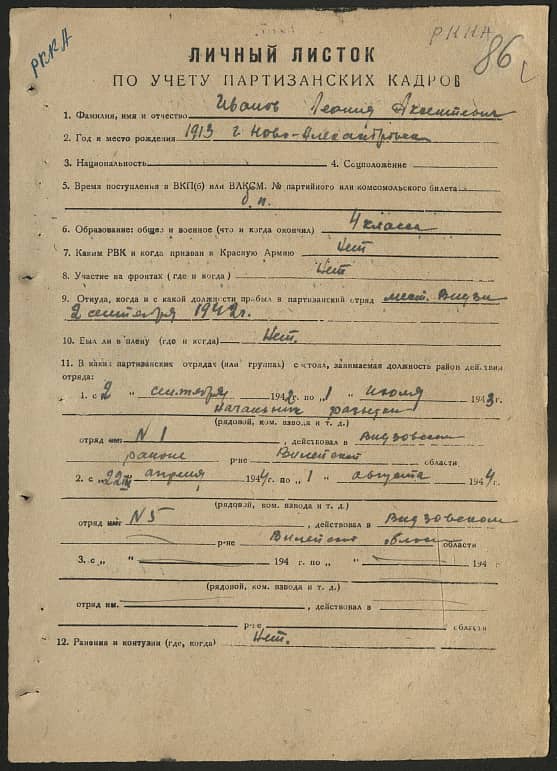 РККА
РККА
86
ЛИЧНЫЙ ЛИСТОК
ПО УЧЕТУ ПАРТИЗАНСКИХ КАДРОВ
1. Фамилия, имя и отчество Иванов Леонид
2. Год и место рождения 1913 г. Ново-Александровск
3. Национальность 4. Соцположение
5. Время поступления в ВКП(б) или ВЛКСМ. № партийного или комсомольского билета
б/п.
6. Образование: общее и военное (что и когда окончил) 4 класса
7. Каким РВК и когда призван в Красную Армию Нет
8. Участие на фронтах (где и когда) Нет
9. Откуда, когда и с какой должности прибыл в партизанский отряд мест. Видзы
2 сентября 1942 г.
10. Был ли в плену (где и когда) Нет.
11. В каких партизанских отрядах (или группах) состоял, занимаемая должность район действия
отряда:
1. с 2 " сентября 1942 г. по " 1 " июля 1943 г.
Начальник разведки
(рядовой, ком. взвода и т. д.)
отряд им. N 1, действовал в Видзовском
районе р-не Вилейской области
2. с " 22 апреля 1944 г. по " 1 " августа 1944 г.
(рядовой, ком. взвода и т. д.)
отряд им. N 5, действовал в Видзовском
р-не Вилейской области
3. с " " 194 г. по " " 194 г
(рядовой, ком. взвода и т. д.)
отряд им. , действовал в
р-не области
12. Ранения и контузии (где, когда) Нет.